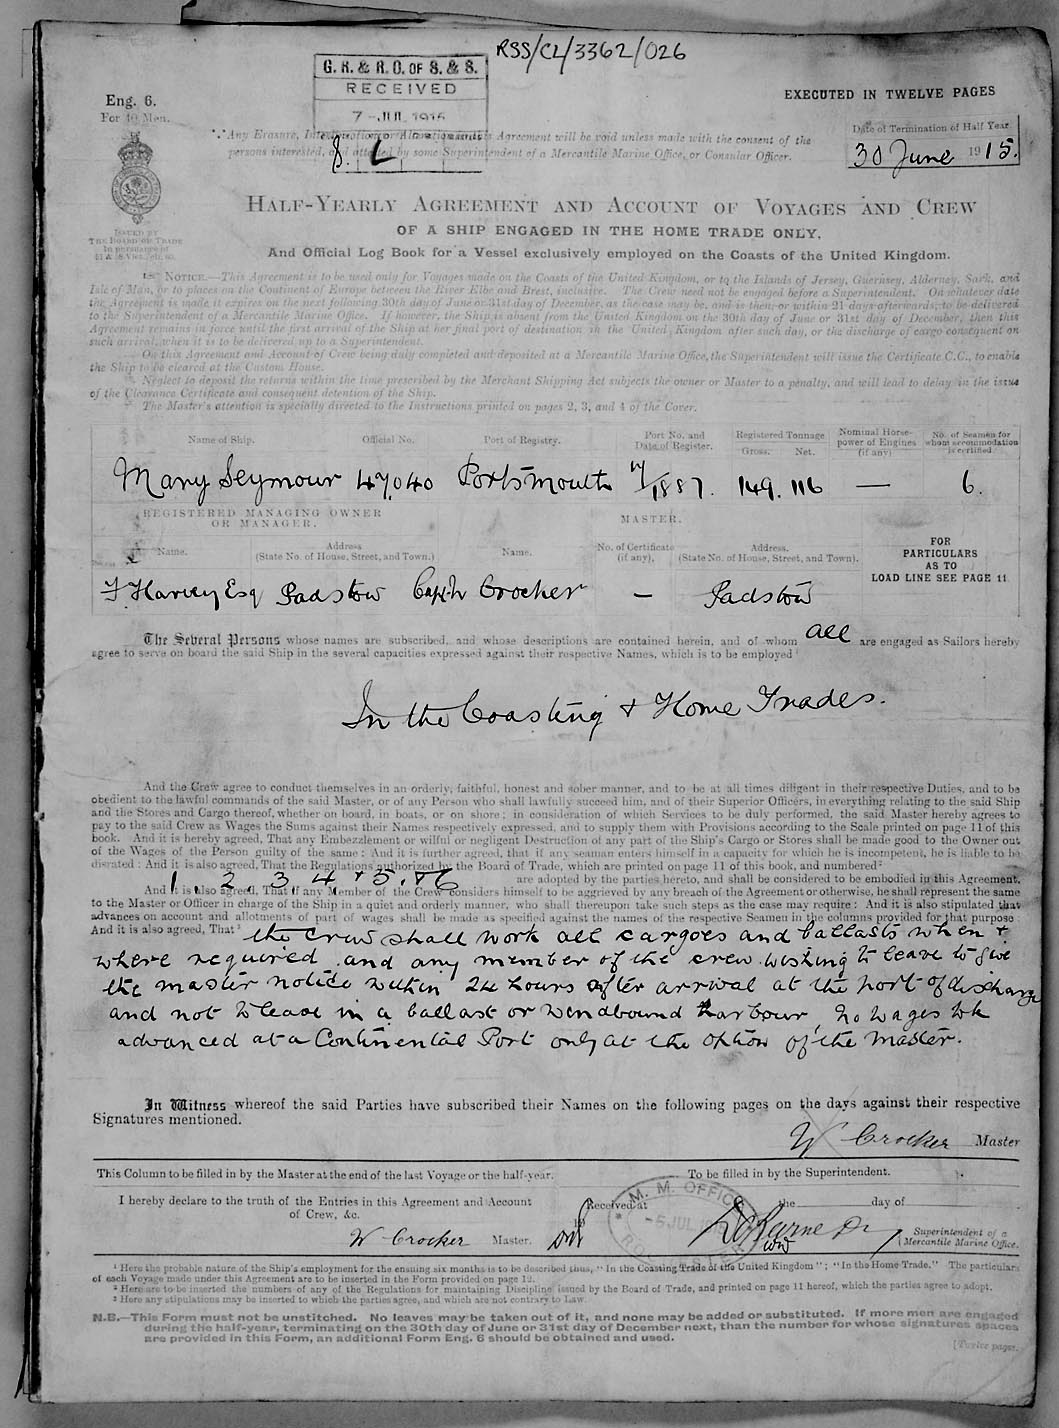 RSS/CL/3362/026
G. R. & R. O. OF S. & S.
RECEIVED
7 - JUL 1915
EXECUTED IN TWELVE PAGES
Eng. 6.
For 10 Men.
Any Erasure, Interlineation or Alteration in this Agreement will be void unless made with the consent of the
persons interested, and attested by some Superintendent of a Mercantile Marine Office, or Consular Officer.
Date of Termination of Half Year.
30 June 1915.
ISSUED BY
THE BOARD OF TRADE
In pursuance of
HALF-YEARLY AGREEMENT AND ACCOUNT OF VOYAGES AND CREW
OF A SHIP ENGAGED IN THE HOME TRADE ONLY,
And Official Log Book for a Vessel exclusively employed on the Coasts of the United Kingdom.
NOTICE.—This Agreement is to be used only for Voyages made on the Coasts of the United Kingdom, or to the Islands of Jersey, Guernsey, Alderney, Sark, and
Isle of Man, or to places on the Continent of Europe between the River Elbe and Brest, inclusive. The Crew need not be engaged before a Superintendent. On whatever date
the Agreement is made it expires on the next following 30th day of June or 31st day of December, as the case may be, and is then, or within 21 days afterwards, to be delivered
to the Superintendent of a Mercantile Marine Office. If however, the Ship is absent from the United Kingdom on the 30th day of June or 31st day of December, then this
Agreement remains in force until the first arrival of the Ship at her final port of destination in the United Kingdom after such day, or the discharge of cargo consequent on
such arrival, when it is to be delivered up to a Superintendent.
On this Agreement and Account of Crew being duly completed and deposited at a Mercantile Marine Office, the Superintendent will issue the Certificate C.C., to enable
the Ship to be cleared at the Custom House.
Neglect to deposit the returns within the time prescribed by the Merchant Shipping Act subjects the owner or Master to a penalty, and will lead to delay in the issue
of the Clearance Certificate and consequent detention of the Ship.
The Master's attention is specially directed to the Instructions printed on pages 2, 3, and 4 of the Cover.
Name of Ship. Official No. Port of Registry. Port No. and Date of Register. Registered Tonnage Gross. Net. Nominal Horse-power of Engines (if any) No. of Seamen for whom accommodation is certified.
Mary Seymour 47,040 Portsmouth 17/1887. 149. 116 — 6.
REGISTERED MANAGING OWNER
OR MANAGER.
MASTER.
Name. Address (State No. of House, Street, and Town.) Name. No. of Certificate (if any). Address. (State No. of House, Street, and Town).
FOR
PARTICULARS
AS TO
LOAD LINE SEE PAGE 11
Harvey Esq Padstow Captn Crocker — Padstow
The Several Persons whose names are subscribed, and whose descriptions are contained herein, and of whom all are engaged as Sailors hereby
agree to serve on board the said Ship in the several capacities expressed against their respective Names, which is to be employed¹
In the Coasting & Home Trades.
And the Crew agree to conduct themselves in an orderly, faithful, honest and sober manner, and to be at all times diligent in their respective Duties, and to be
obedient to the lawful commands of the said Master, or of any Person who shall lawfully succeed him, and of their Superior Officers, in everything relating to the said Ship
and the Stores and Cargo thereof, whether on board, in boats, or on shore; in consideration of which Services to be duly performed, the said Master hereby agrees to
pay to the said Crew as Wages the Sums against their Names respectively expressed, and to supply them with Provisions according to the Scale printed on page 11 of this
book. And it is hereby agreed, That any Embezzlement or wilful or negligent Destruction of any part of the Ship's Cargo or Stores shall be made good to the Owner out
of the Wages of the Person guilty of the same: And it is further agreed, that if any seaman enters himself in a capacity for which he is incompetent, he is liable to be
disrated: And it is also agreed, That the Regulations authorized by the Board of Trade, which are printed on page 11 of this book, and numbered²
1, 2, 3, 4, + 5, + 6 are adopted by the parties hereto, and shall be considered to be embodied in this Agreement.
And it is also agreed, That if any Member of the Crew considers himself to be aggrieved by any breach of the Agreement or otherwise, he shall represent the same
to the Master or Officer in charge of the Ship in a quiet and orderly manner, who shall thereupon take such steps as the case may require: And it is also stipulated that
advances on account and allotments of part of wages shall be made as specified against the names of the respective Seamen in the columns provided for that purpose:
And it is also agreed, That³ the crew shall work all cargoes and ballasts when &
where required and any member of the crew wishing to leave to give
the master notice within 24 hours after arrival at the port of discharge
and not to leave in a ballast or windbound harbour, no wages to be
advanced at a Continental Port only at the option of the Master.
In Witness whereof the said Parties have subscribed their Names on the following pages on the days against their respective
Signatures mentioned.
W Crocker Master
This Column to be filled in by the Master at the end of the last Voyage or the half-year.
To be filled in by the Superintendent.
I hereby declare to the truth of the Entries in this Agreement and Account
of Crew, &c.
W Crocker Master.
Received at the day of
M. M. OFFICE
5 JUL
Superintendent of a
Mercantile Marine Office.
¹ Here the probable nature of the Ship's employment for the ensuing six months is to be described thus, "In the Coasting Trade of the United Kingdom"; "In the Home Trade." The particulars
of each Voyage made under this Agreement are to be inserted in the Form provided on page 12.
² Here are to be inserted the numbers of any of the Regulations for maintaining Discipline issued by the Board of Trade, and printed on page 11 hereof, which the parties agree to adopt.
³ Here any stipulations may be inserted to which the parties agree, and which are not contrary to Law.
N.B.—This Form must not be unstitched. No leaves may be taken out of it, and none may be added or substituted. If more men are engaged
during the half-year, terminating on the 30th day of June or 31st day of December next, than the number for whose signatures spaces
are provided in this Form, an additional Form Eng. 6 should be obtained and used.
[Twelve pages.